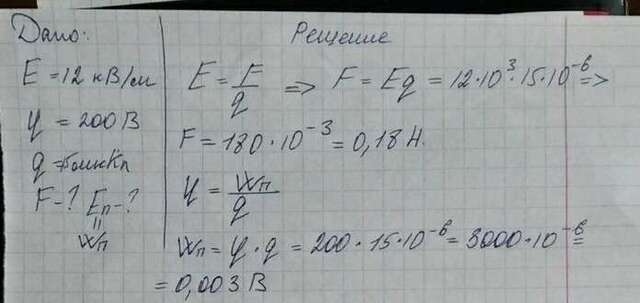 Дано:
E = 12 кВ/м
φ = 200 В
F - ? Eп - ?
||
Wп
Решение
E = F/q => F = Eq = 12·10³·15·10⁻⁶ =>
F = 180·10⁻³ = 0,18 Н.
φ = Wп/q
Wп = φ·q = 200·15·10⁻⁶ = 3000·10⁻⁶ =
= 0,003 В